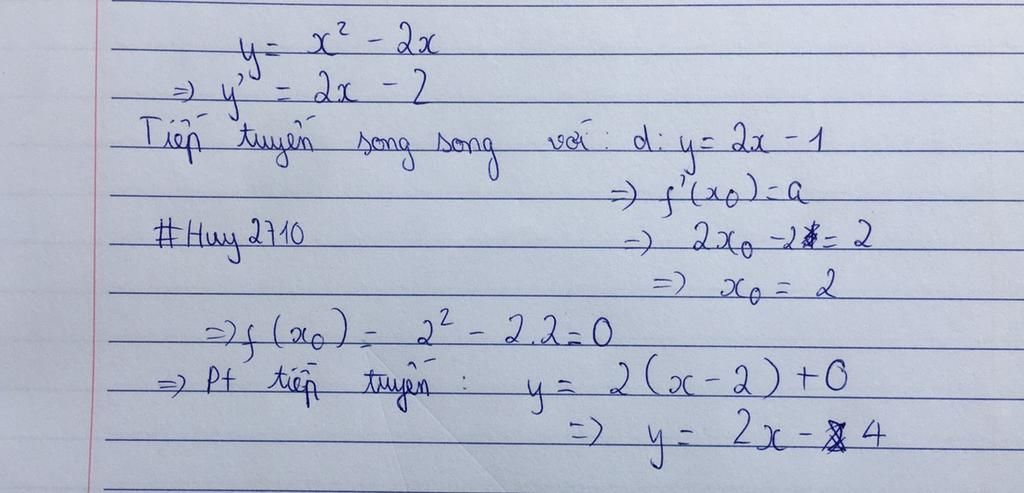 y = x² - 2x
=> y' = 2x - 2
Tiếp tuyến song song với: d: y = 2x - 1
=> f'(x₀) = a
#Huy2710
=> 2x₀ - 2 = 2
=> x₀ = 2
=> f(x₀) = 2² - 2.2 = 0
=> Pt tiếp tuyến: y = 2(x - 2) + 0
=> y = 2x - 4